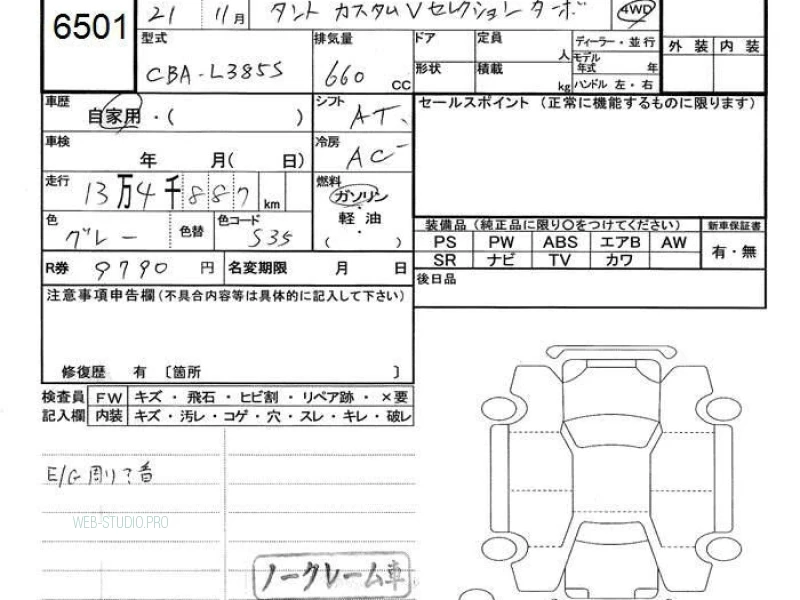 6501
21 11月 タント カスタム Vセレクション ターボ 4WD
型式 排気量 ドア 定員 ディーラー・並行 外装 内装
CBA-L385S 660 CC 人 モデル年式 年
形状 積載 kg ハンドル 左・右
車歴 自家用・( ) シフト AT
セールスポイント (正常に機能するものに限ります)
車検 年 月( 日) 冷房 AC
走行 13万4千887 km 燃料 ガソリン・軽油・( )
色 グレー 色替 色コード S35
装備品 (純正品に限り○をつけてください) 新車保証書
PS PW ABS エアB AW 有・無
SR ナビ TV カワ
R券 9790 円 名変期限 月 日
後日品
注意事項申告欄(不具合内容等は具体的に記入して下さい)
修復歴 有 〔箇所 〕
検査員 FW キズ・飛石・ヒビ割・リペア跡・×要
記入欄 内装 キズ・汚レ・コゲ・穴・スレ・キレ・破レ
WEB-STUDIO.PRO
ノークレーム車